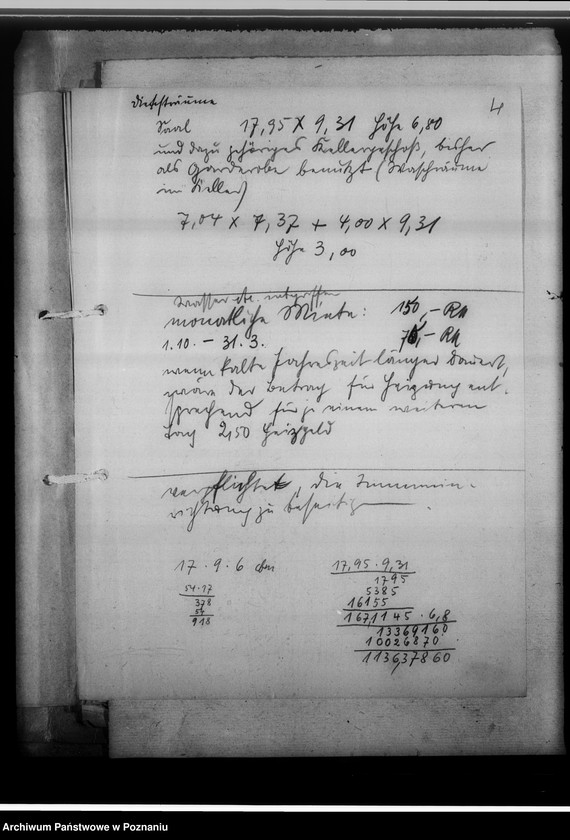 4
Saal 17,95 X 9,31 Höhe 6,80
und dazu gehöriges Kellergeschoß, bisher
als Garderobe benutzt (Waschräume
im Keller)
7,04 x 7,37 + 4,00 x 9,31
Höhe 3,00
Wasser etc. inbegriffen
monatliche Miete: 150,- RM
1.10. - 31.3. 75,- RM
wenn kalte Jahreszeit länger dauert,
wäre der Betrag für Heizung ent-
sprechend für je einen weiteren
Tag 2,50 Heizgeld
verpflichtet, die Innenein-
richtung zu beseitigen.
17 . 9 . 6 cbm
54.17
378
54
918
17,95 . 9,31
1795
5385
16155
167,1145 . 6,8
13369160
10026870
1136,37860
Archiwum Państwowe w Poznaniu